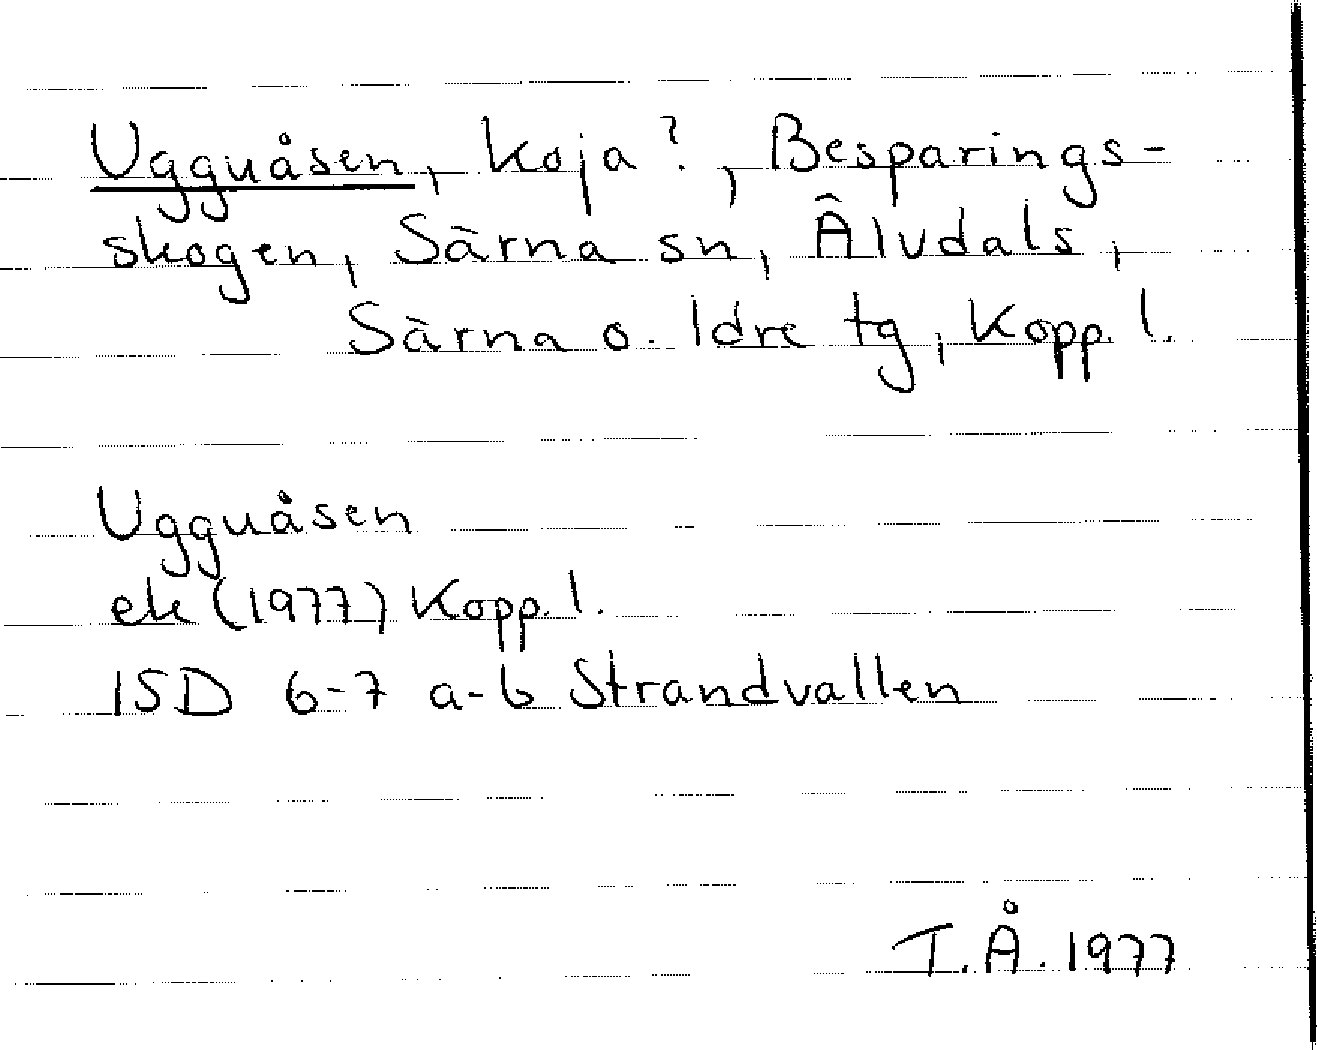 Ugguåsen, koja?, Besparings-
skogen, Särna sn, Älvdals,
Särna o. Idre tg, Kopp. l.
Ugguåsen
ek (1977) Kopp. l.
15D 6-7 a-b Strandvallen
T.Å. 1977